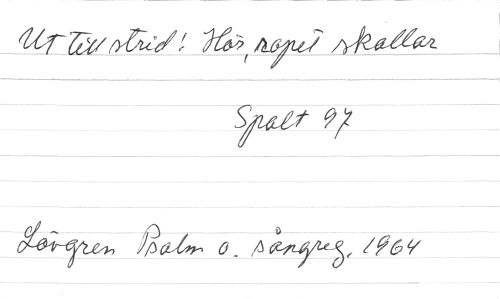 Ut till strid! Hör, ropet skallar
Spalt 97
Lövgren Psalm o. sångreg. 1964